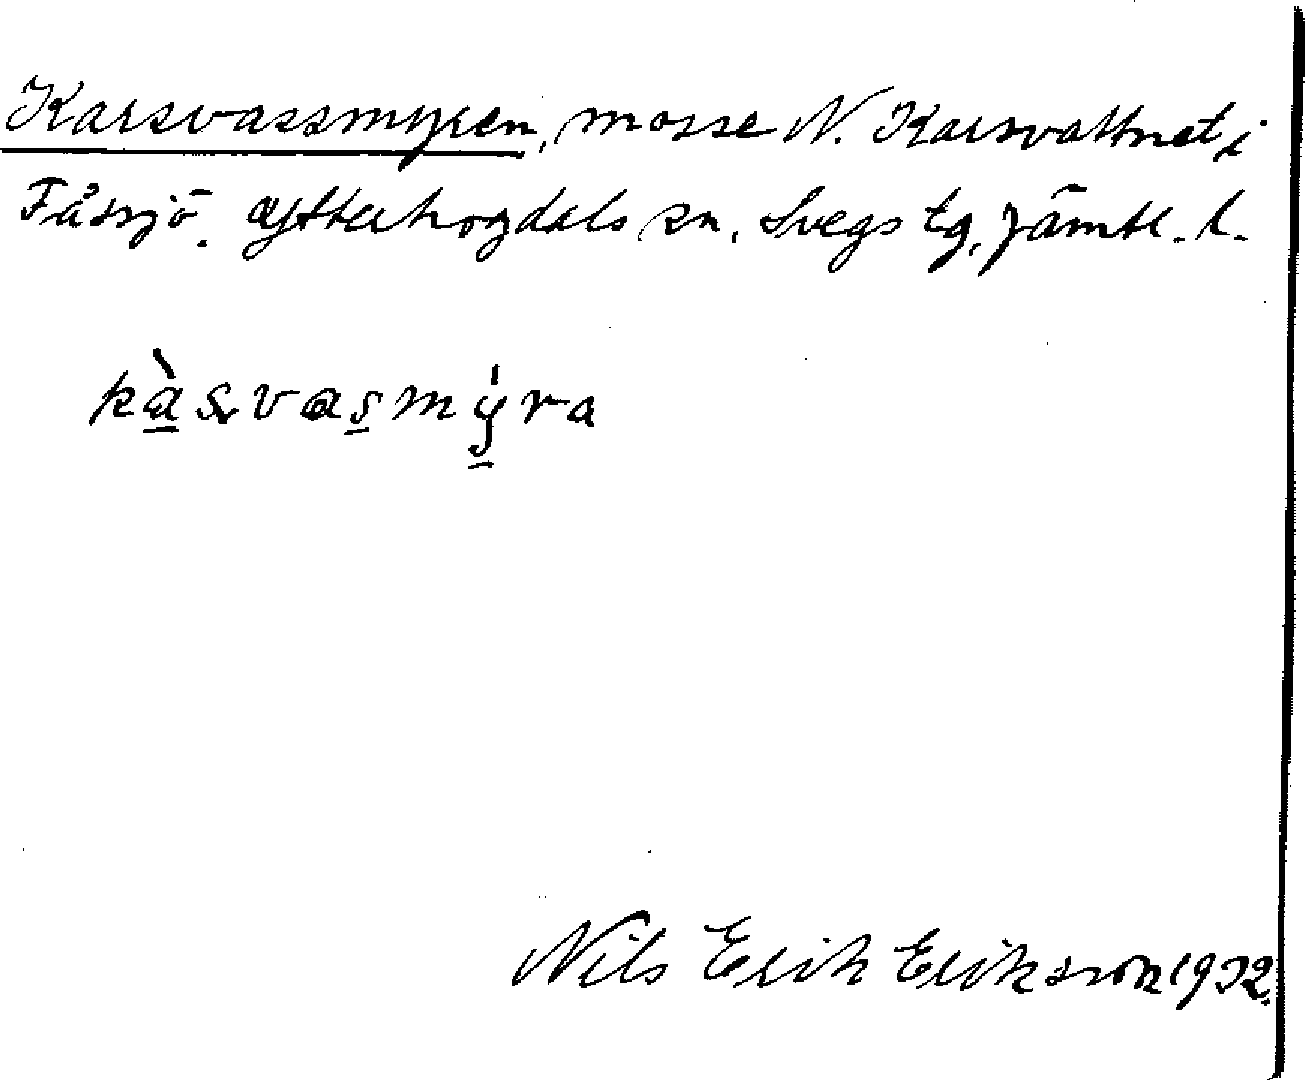 Karsvassmyren, mosse N. Karsvattnet i
Fåssjö. Ytterhogdals sn, Svegs tg, Jämtl. l.
kàsvasmýra
Nils Erik Eriksson 1932.